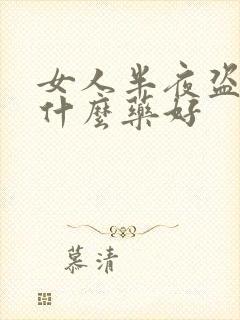 女人半夜盗
什麼藥好
慕清